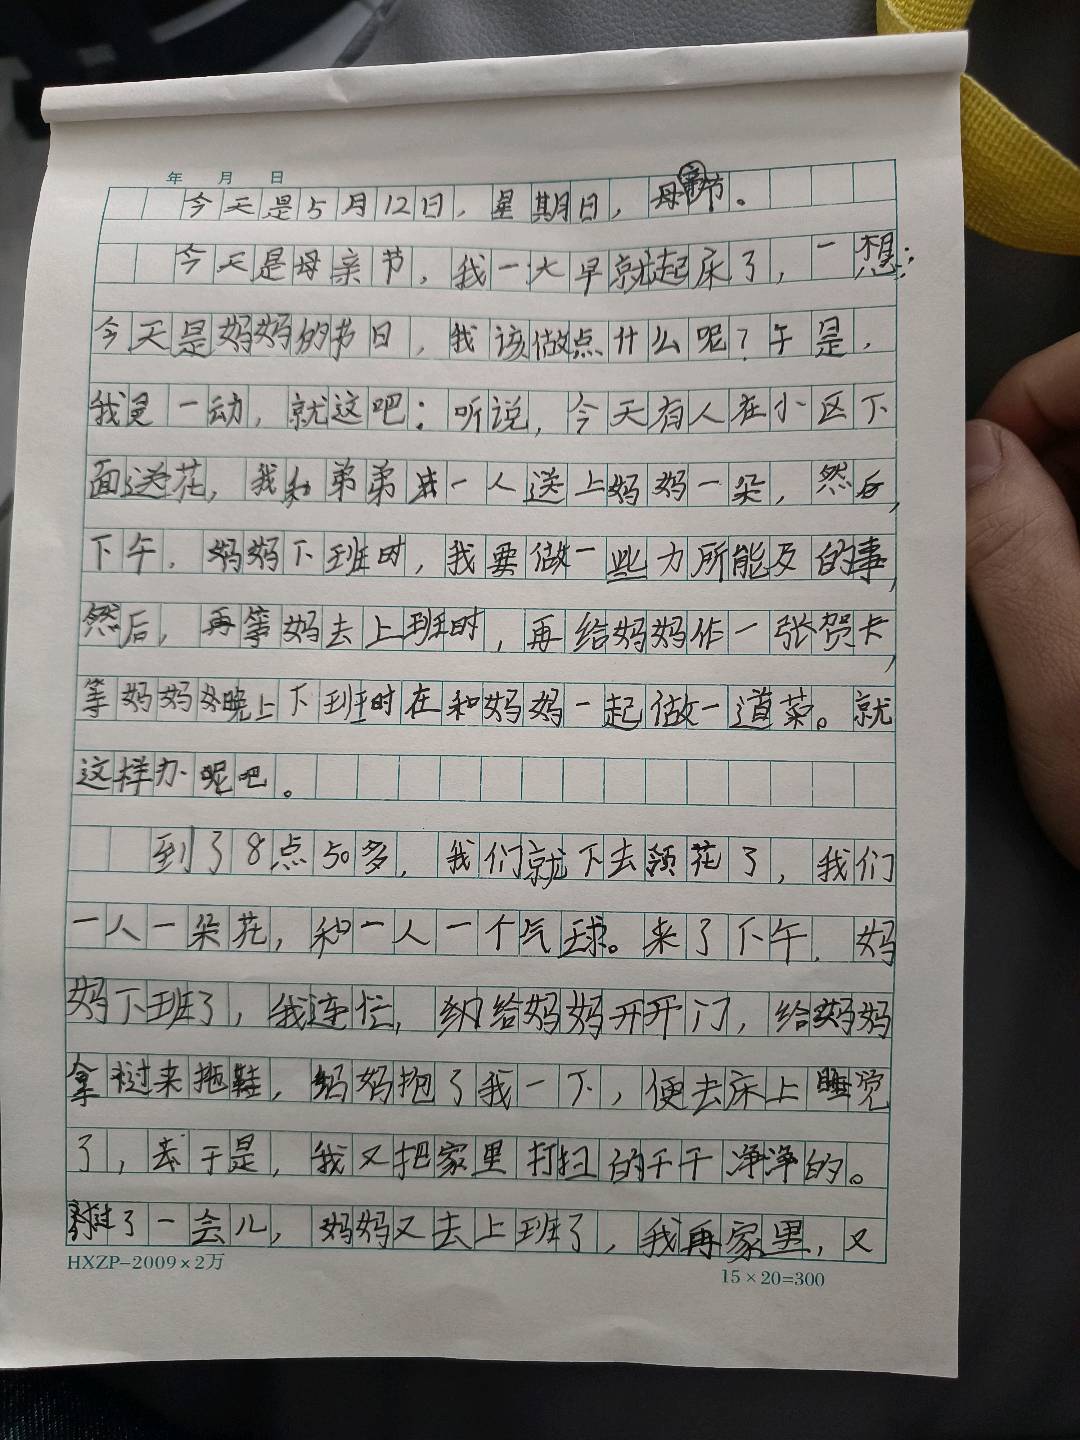 年 月 日
今天是5月12日，星期日，母亲节。
今天是母亲节，我一大早就起床了，一想：
今天是妈妈的节日，我该做点什么呢？于是，
我灵一动，就这吧：听说，今天有人在小区下
面送花，我和弟弟一人送上妈妈一朵，然后，
下午，妈妈下班时，我要做一些力所能及的事，
然后，再等妈去上班时，再给妈妈作一张贺卡，
等妈妈晚上下班时在和妈妈一起做一道菜。就
这样办呢吧。
到了8点50多，我们就下去领花了，我们
一人一朵花，和一人一个气球。来了下午，妈
妈下班了，我连忙，给妈妈开开门，给妈妈
拿过来拖鞋，妈妈抱了我一下，便去床上睡觉
了，于是，我又把家里打扫的干干净净的。
过了一会儿，妈妈又去上班了，我再家里，又
HXZP-2009×2万
15×20=300